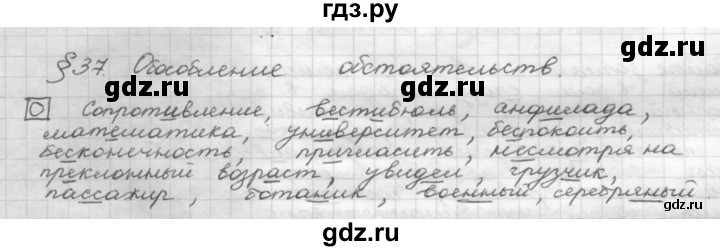 гдз.ру
§37. Обособление обстоятельств.
О Сопротивление, вестибюль, анфилада,
математика, университет, беспокоить,
бесконечность, пригласить, несмотря на
преклонный возраст, увидел, грузчик,
пассажир, ботаник, военный, серебряный
gdz.ru gdz.ru
gdz.ru gdz.ru